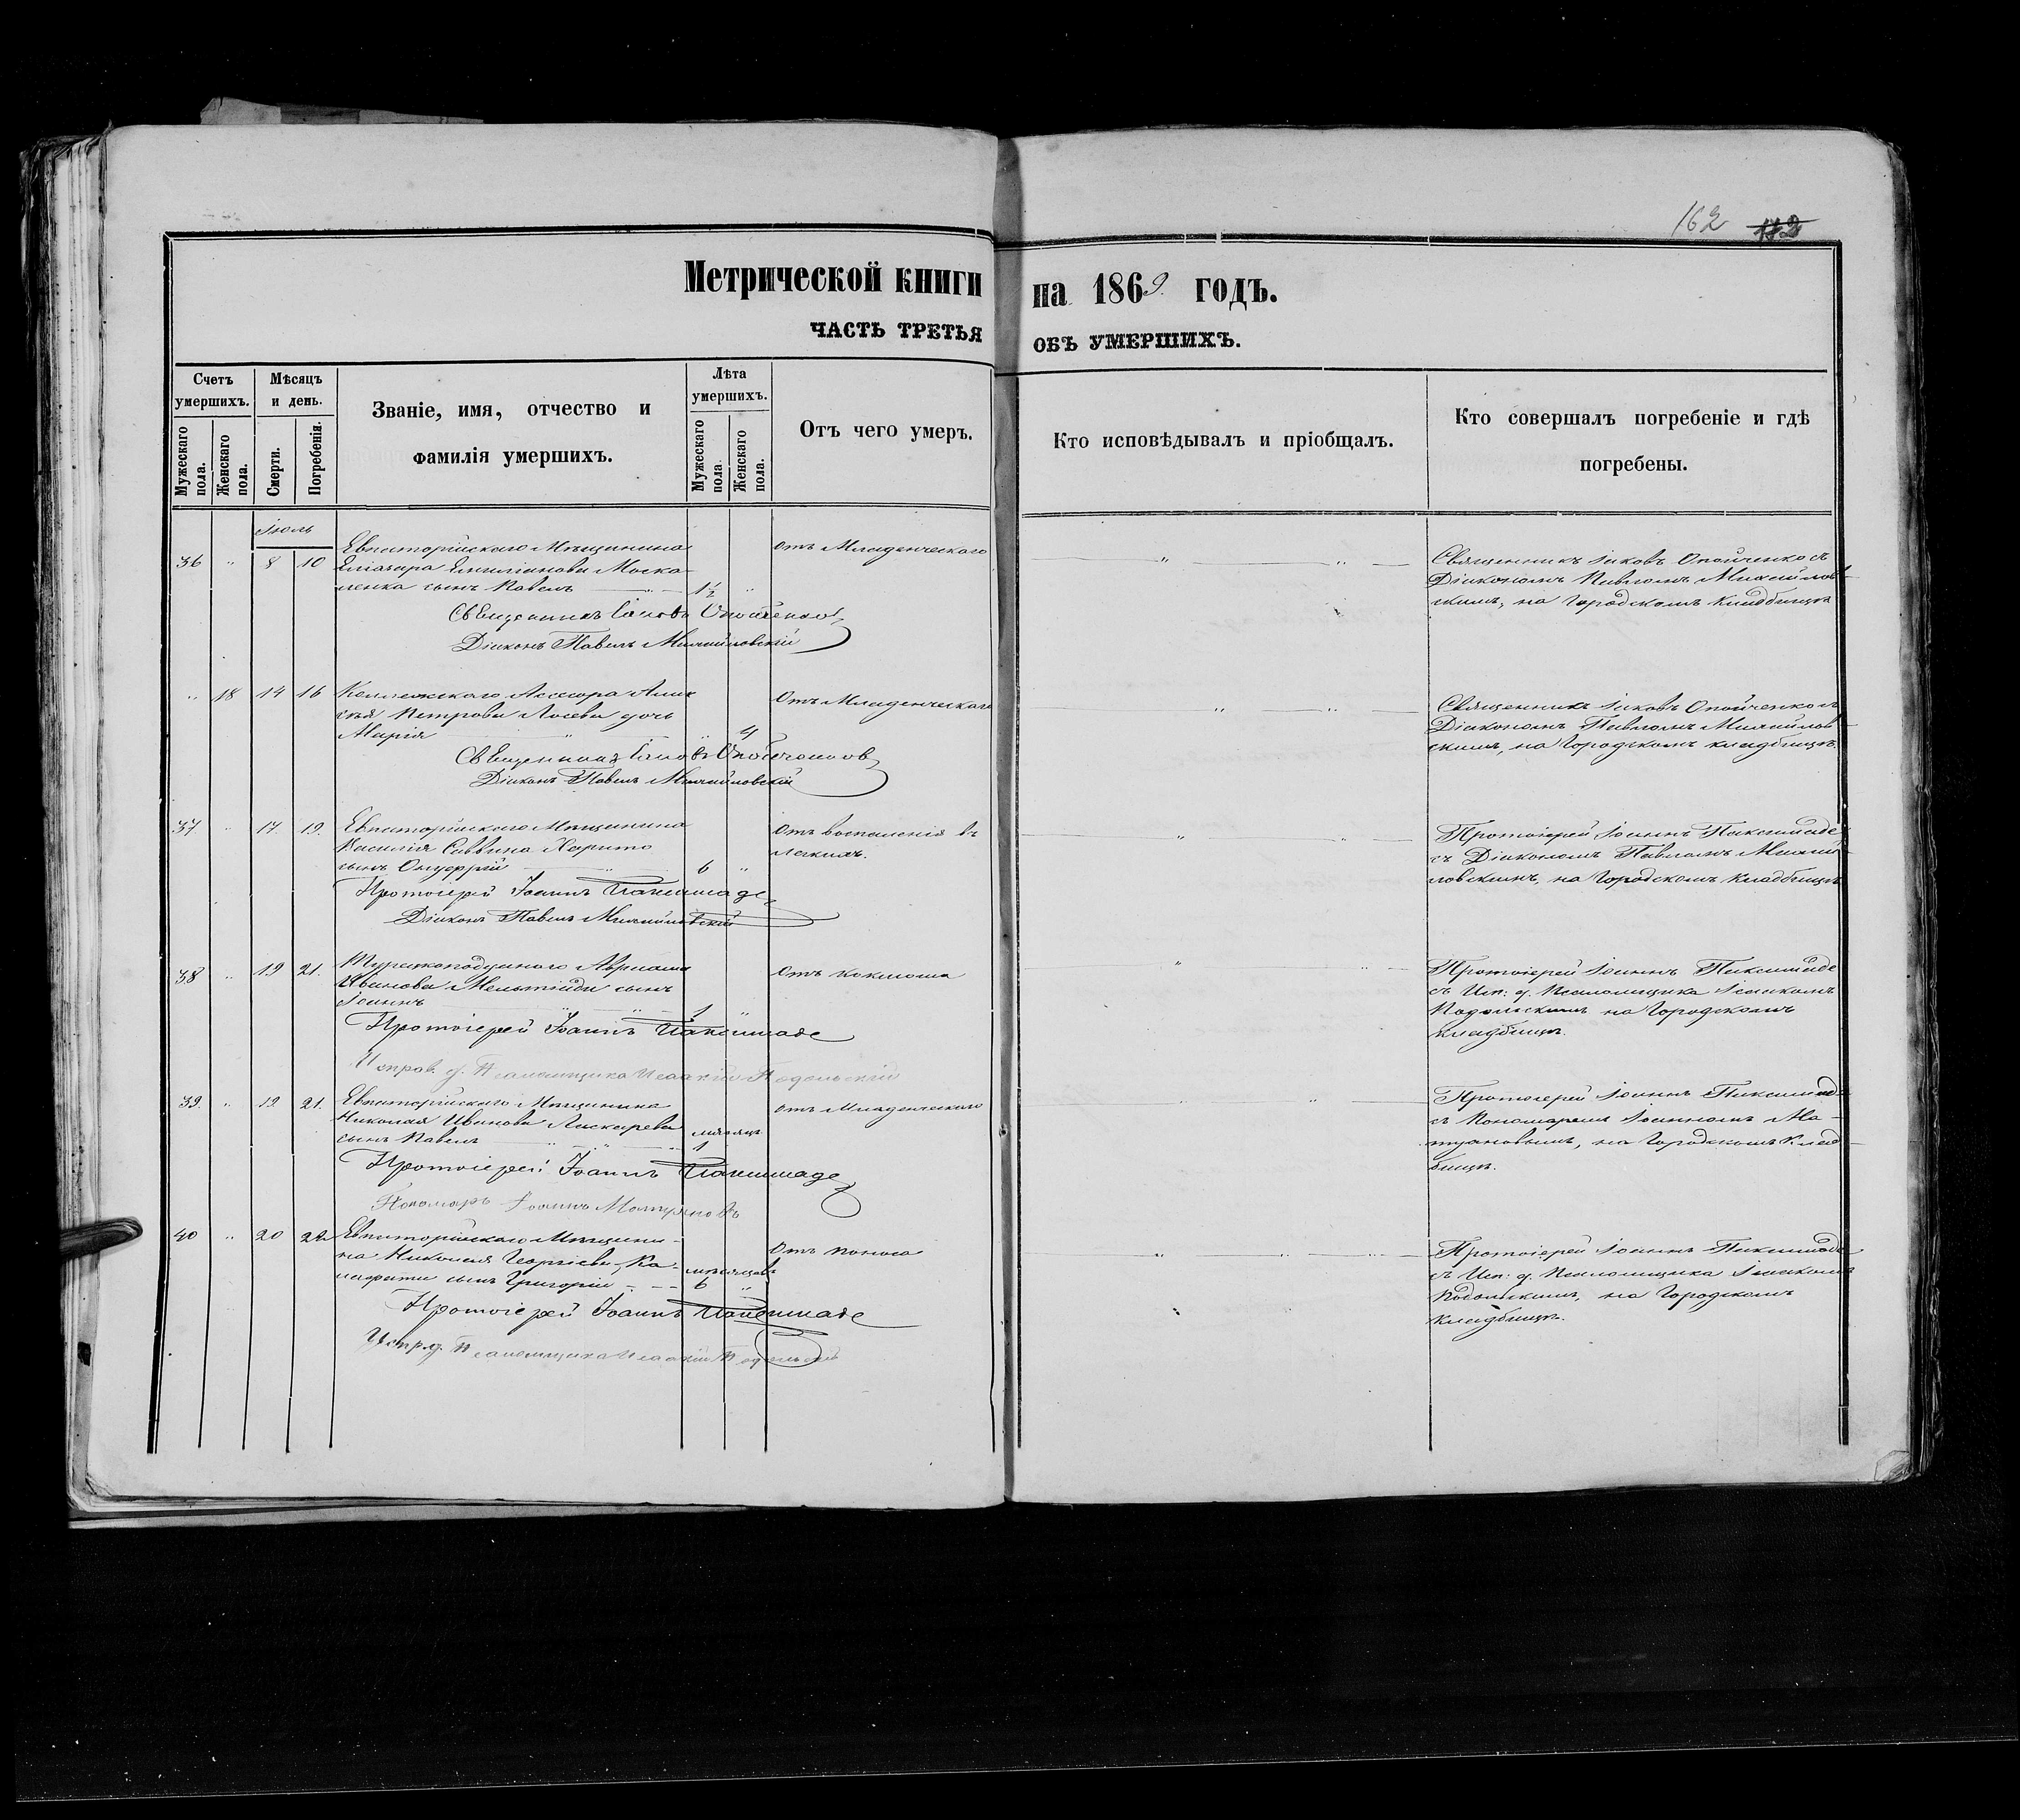 162 112
Метрической книги на 1869. годъ.
ЧАСТЬ ТРЕТЬЯ ОБЪ УМЕРШИХЪ.
Счетъ умершихъ.
Мужескаго пола.
Женскаго пола.
Мѣсяцъ и день.
Смерти.
Погребенія.
Званіе, имя, отчество и
фамилія умершихъ.
Лѣта умершихъ.
Мужескаго пола.
Женскаго пола.
Отъ чего умеръ.
Кто исповѣдывалъ и пріобщалъ.
Кто совершалъ погребеніе и гдѣ
погребены.
Іюль
36 " 8 10
Евпаторійскаго Мѣщанина
Емиліанова Моска-
ленка сынъ Павелъ 1½ "
Отъ Младенческаго
Священникъ Іаковъ Опойченко съ
Діакономъ Павломъ Михайлов-
скимъ, на Городскомъ кладбищѣ
Священникъ Іаковъ Опойченковъ
Діаконъ Павелъ Михайловскій
" 18 14 16
Коллежскаго Ассесора Алек-
сѣя Петрова Лосева дочь
Марія " 4
Отъ Младенческаго
Священникъ Іаковъ Опойченко съ
Діакономъ Павломъ Михайлов-
скимъ, на Городскомъ кладбищѣ.
Священникъ Іаковъ Опойченковъ
Діаконъ Павелъ Михайловскій
37 " 17 19.
Евпаторійскаго Мѣщанина
Василія Саввина Харито
сынъ Онуфрій 6 "
Отъ воспаленія въ
легкихъ.
Протоіерей Іоаннъ
съ Діакономъ Павломъ Михай-
ловскимъ, на Городскомъ Кладбищѣ
Протоіерей Іоаннъ
Діаконъ Павелъ Михайловскій
38 " 19 21.
Турецкоподданого
Иванова сынъ
Іоаннъ 1 "
Отъ коклюша
Протоіерей Іоаннъ
съ Исп: д. Псаломщика Ісаакомъ
Подольскимъ на Городскомъ
кладбищѣ.
Протоіерей Іоаннъ
Исправ. д. Псаломщика Исаакій Подольскій
39. " 19 21.
Евпаторійскаго Мѣщанина
Николая Иванова Лискарева мѣсяцъ
сынъ Павелъ 1
Отъ Младенческаго
Протоіерей Іоаннъ
съ Пономаремъ Іоанномъ Ма-
на Городскомъ Клад-
бищѣ.
Протоіерей Іоаннъ
Пономарь Іоаннъ
40 " 20 22
Евпаторійскаго Мѣщани-
на Николая Георгіева Ка- мѣсяцовъ
сынъ Григорій 6 "
Отъ поноса
Протоіерей Іоаннъ
съ Исп: д. Псаломщика Ісаакомъ
Подольскимъ, на Городскомъ
Кладбищѣ.
Протоіерей Іоаннъ
Испр. д. Псаломщика Исаакій Подольскій